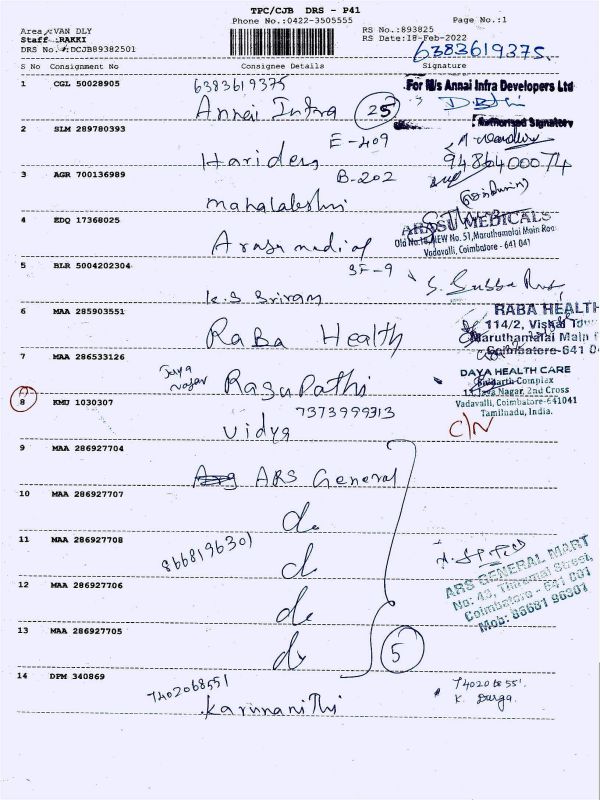 TPC/CJB DRS - P41
Phone No.:0422-3505555 Page No.:1
Area :VAN DLY RS No.:893825
Staff :RAKKI RS Date:18-Feb-2022
DRS No.:DCJB89382501 6383619375
S No Consignment No Consignee Details Signature
1 CGL 50028905 6383619375 For M/s Annai Infra Developers Ltd
Annai Infra 25
Authorised Signatory
2 SLM 289780393 E-409
Hariders 9486400074
3 AGR 700136989 B-202
mahalakshmi
4 EDQ 17368025 ARASU MEDICALS
Arasu medical Old No.14, NEW No. 51, Maruthamalai Main Roa
Vadavalli, Coimbatore - 641 041
5 BLR 5004202304 3F-9
K.S Sriram S. Subba
6 MAA 285903551 RABA HEALTH
RaBa Health 114/2, Vishal Tow
Maruthamalai Main
Coimbatore-641 0
7 MAA 286533126 DAYA HEALTH CARE
Jaya Nagar Ragupathi Sidharth Complex
Jaya Nagar, 2nd Cross
8 KMU 1030307 7373999313 Vadavalli, Coimbatore-641041
Tamilnadu, India.
Vidya C/N
9 MAA 286927704
ARS General
10 MAA 286927707
do
11 MAA 286927708 8668196301
d
ARS GENERAL MART
12 MAA 286927706 No: 43, Thirumal Street,
do Coimbatore - 641 001
Mob: 86681 96301
13 MAA 286927705
do 5
14 DPM 340869 7402068551 7402068551
Karunanithi K. Durga